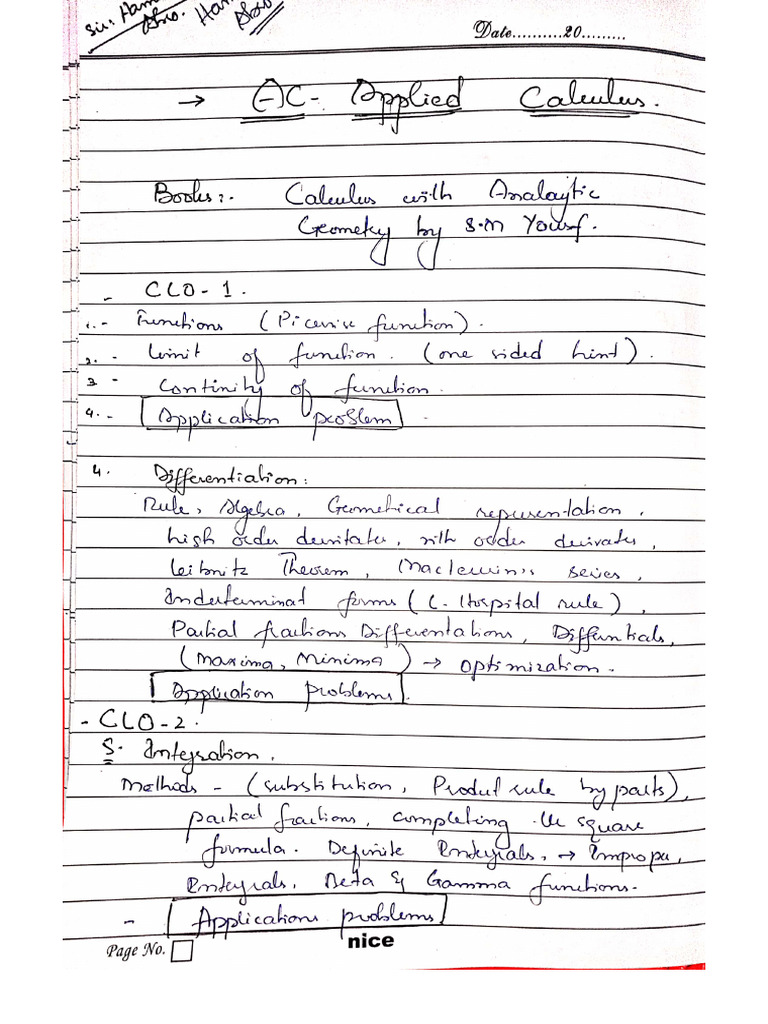 Sir: Ham
Abro. Ham
Abro
Date..........20.........
→ AC- Applied Calculus.
Books:- Calculus with Analaytic
Geometry by S.M Yousf.
- CLO-1.
1.- Functions (Picewise function).
2. - Limit of function. (one sided limit).
3 - Continity of function.
4.- Application problem -
4. Differentiation:
Rule, Algebra, Geometrical representation,
high order derivtates, nth order derivates,
Leibnitz Theorem, Maclewrin's series,
Indeterminat forms (L. Hospital rule),
Partial fractions Differentations, Differntials,
(Maxima, Minima) → optimization.
Application problems.
- CLO-2.
5. Integration.
Methods - (substitution, Produt rule by parts),
partial fractions, completing the square
formula. Definite Entegrals, → Imprope,
Entegrals, Beta & Gamma functions.
- Applications problems
Page No.
nice